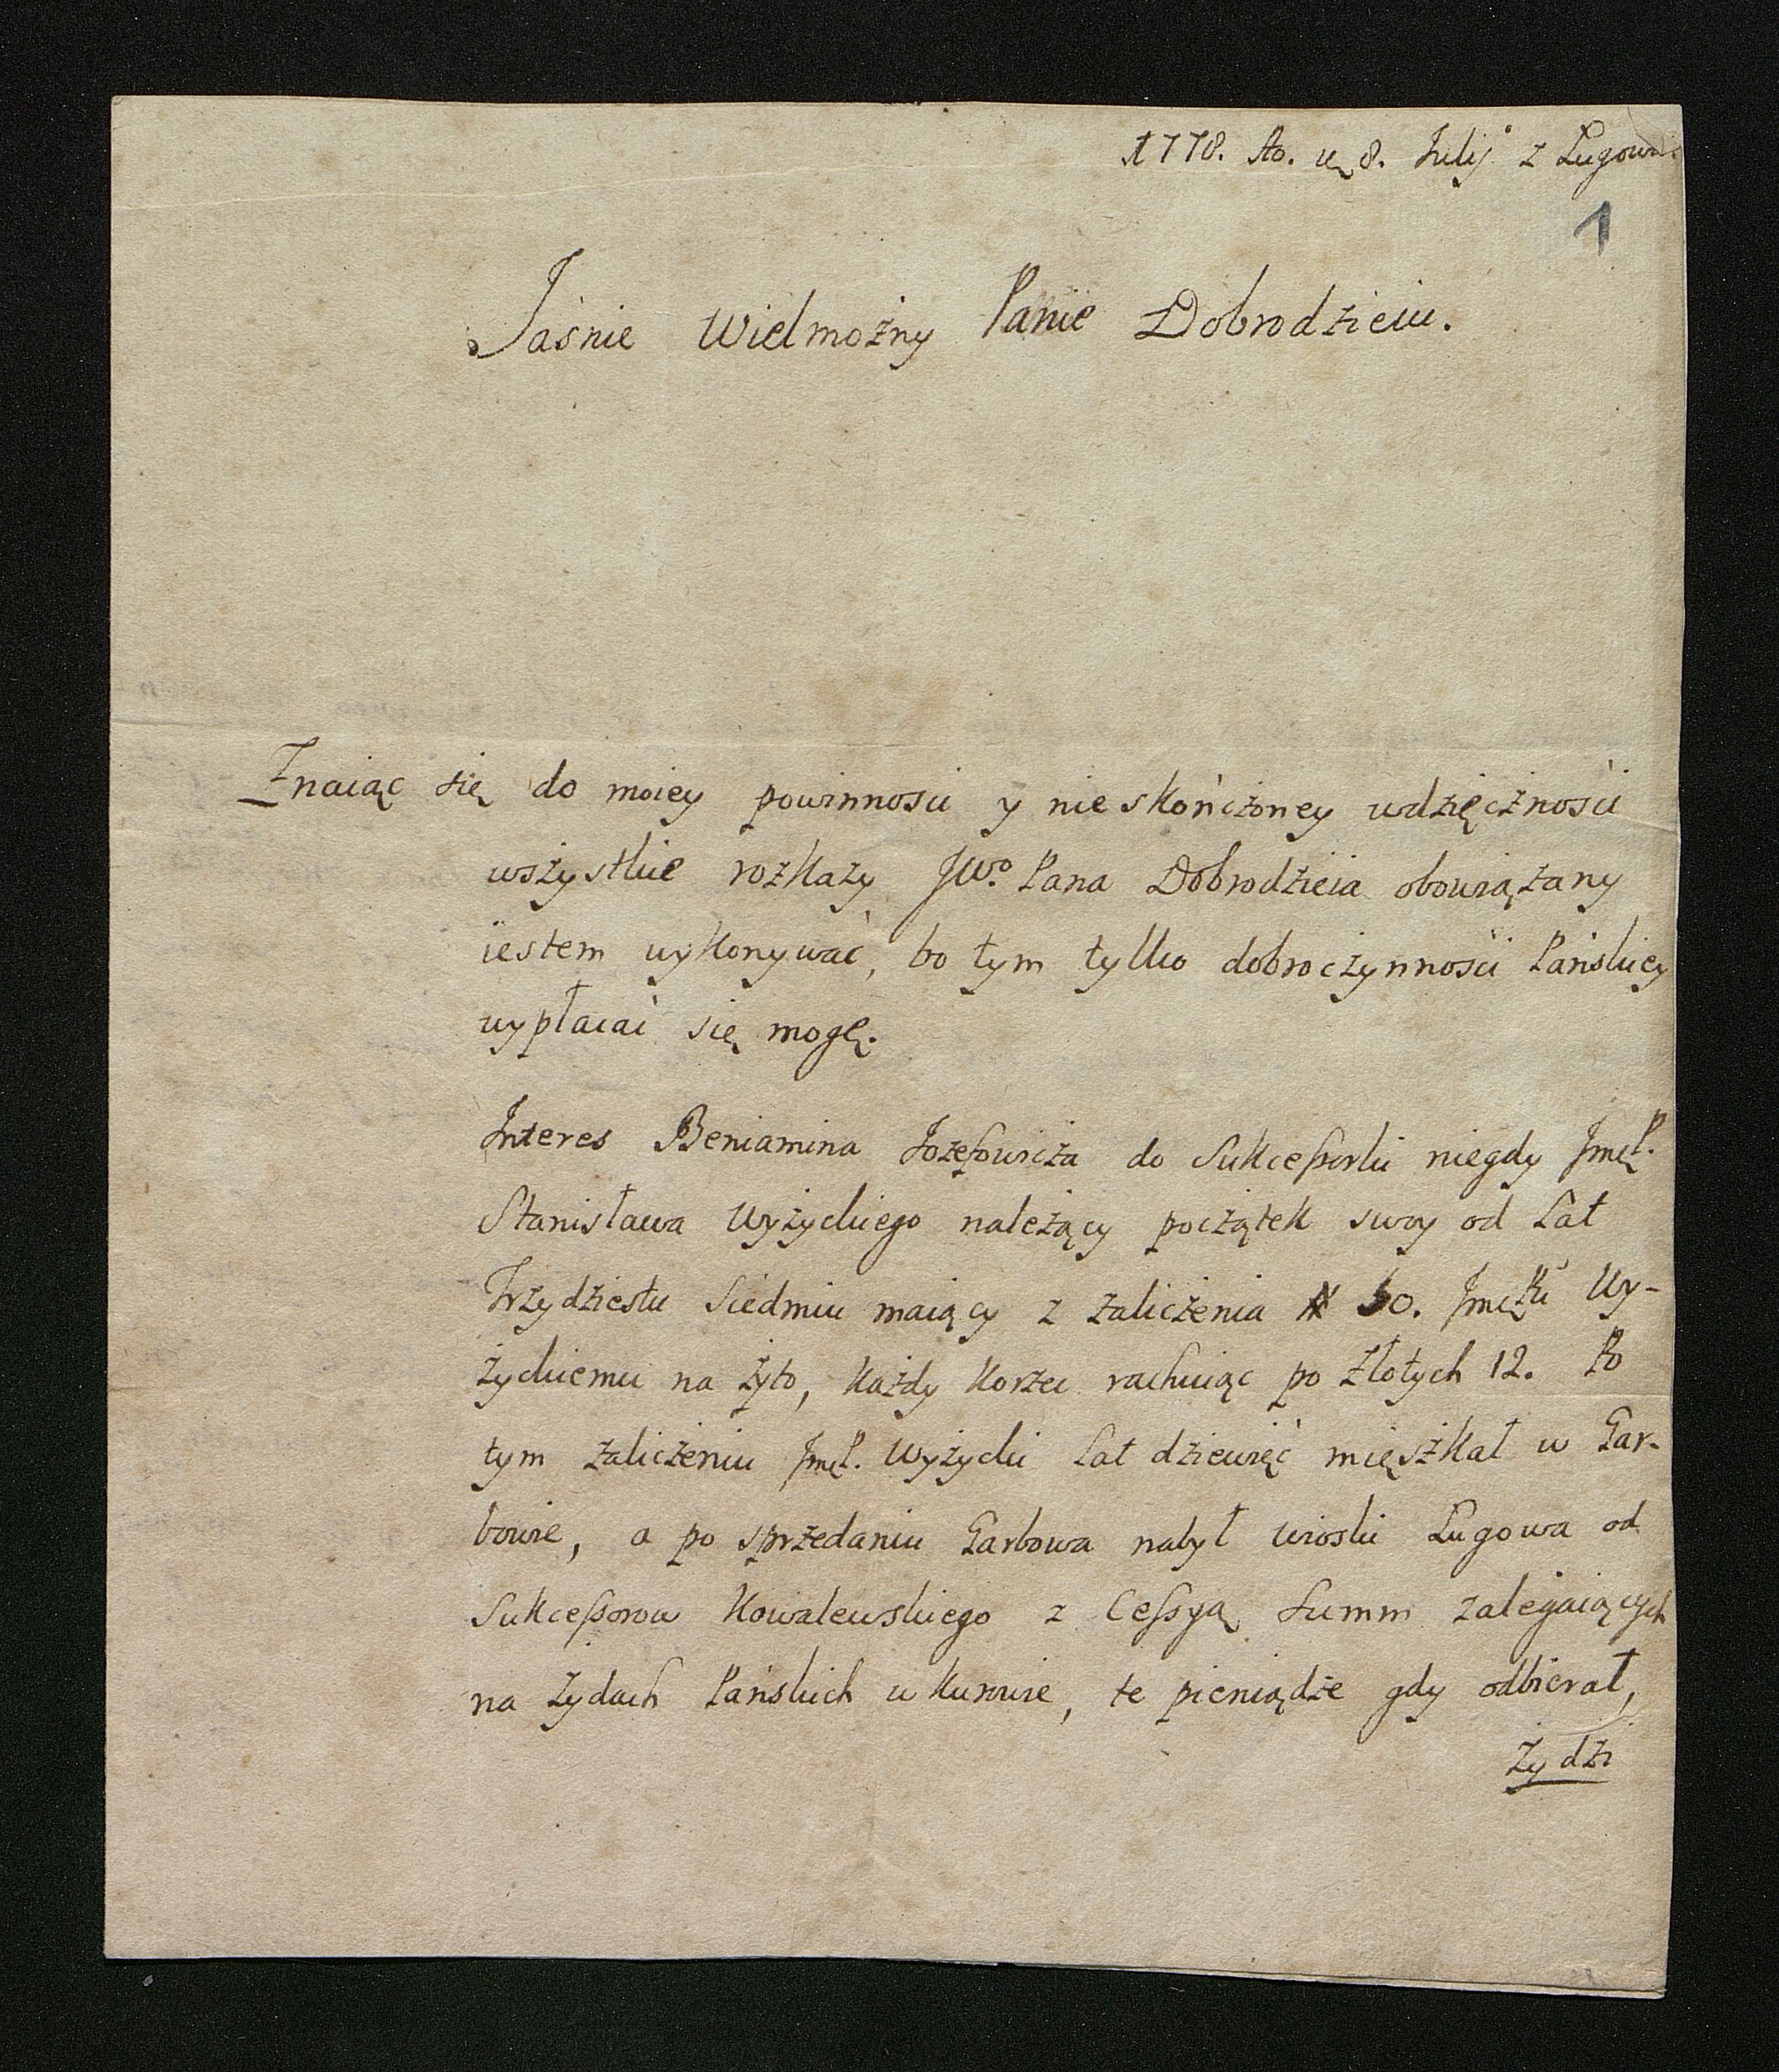 1778. Ao. d. 8. Julij z Ługowa.
1
Jaśnie Wielmożny Panie Dobrodzieiu.
Znaiąc się do moiey powinnosci y nieskończoney wdzięczności
wszystkie rozkazy JWo. Pana Dobrodzieia obowiązany
iestem wykonywać, bo tym tylko dobroczynności Pańskiey
wypłacać się mogę.
Interes Beniamina Jozefowicza do Sukcessorki niegdy JmcP.
Stanisława Wyżyckiego należący początek swoy od Lat
Trzydziestu Siedmiu maiący z zaliczenia # 50. JmcPu Wy-
życkiemu na żyto, każdy korzec rachuiąc po złotych 12. Po
tym zaliczeniu JmcP. Wyżycki Lat dziewięć mięszkał w Gar-
bowie, a po sprzedaniu Garbowa nabył wioski Ługowa od
Sukcessorow Kowalewskiego z Cessyą Summ zalegaiących
na Zydach Pańskich w Kurowie, te pieniądze gdy odbierał,
Zydzi